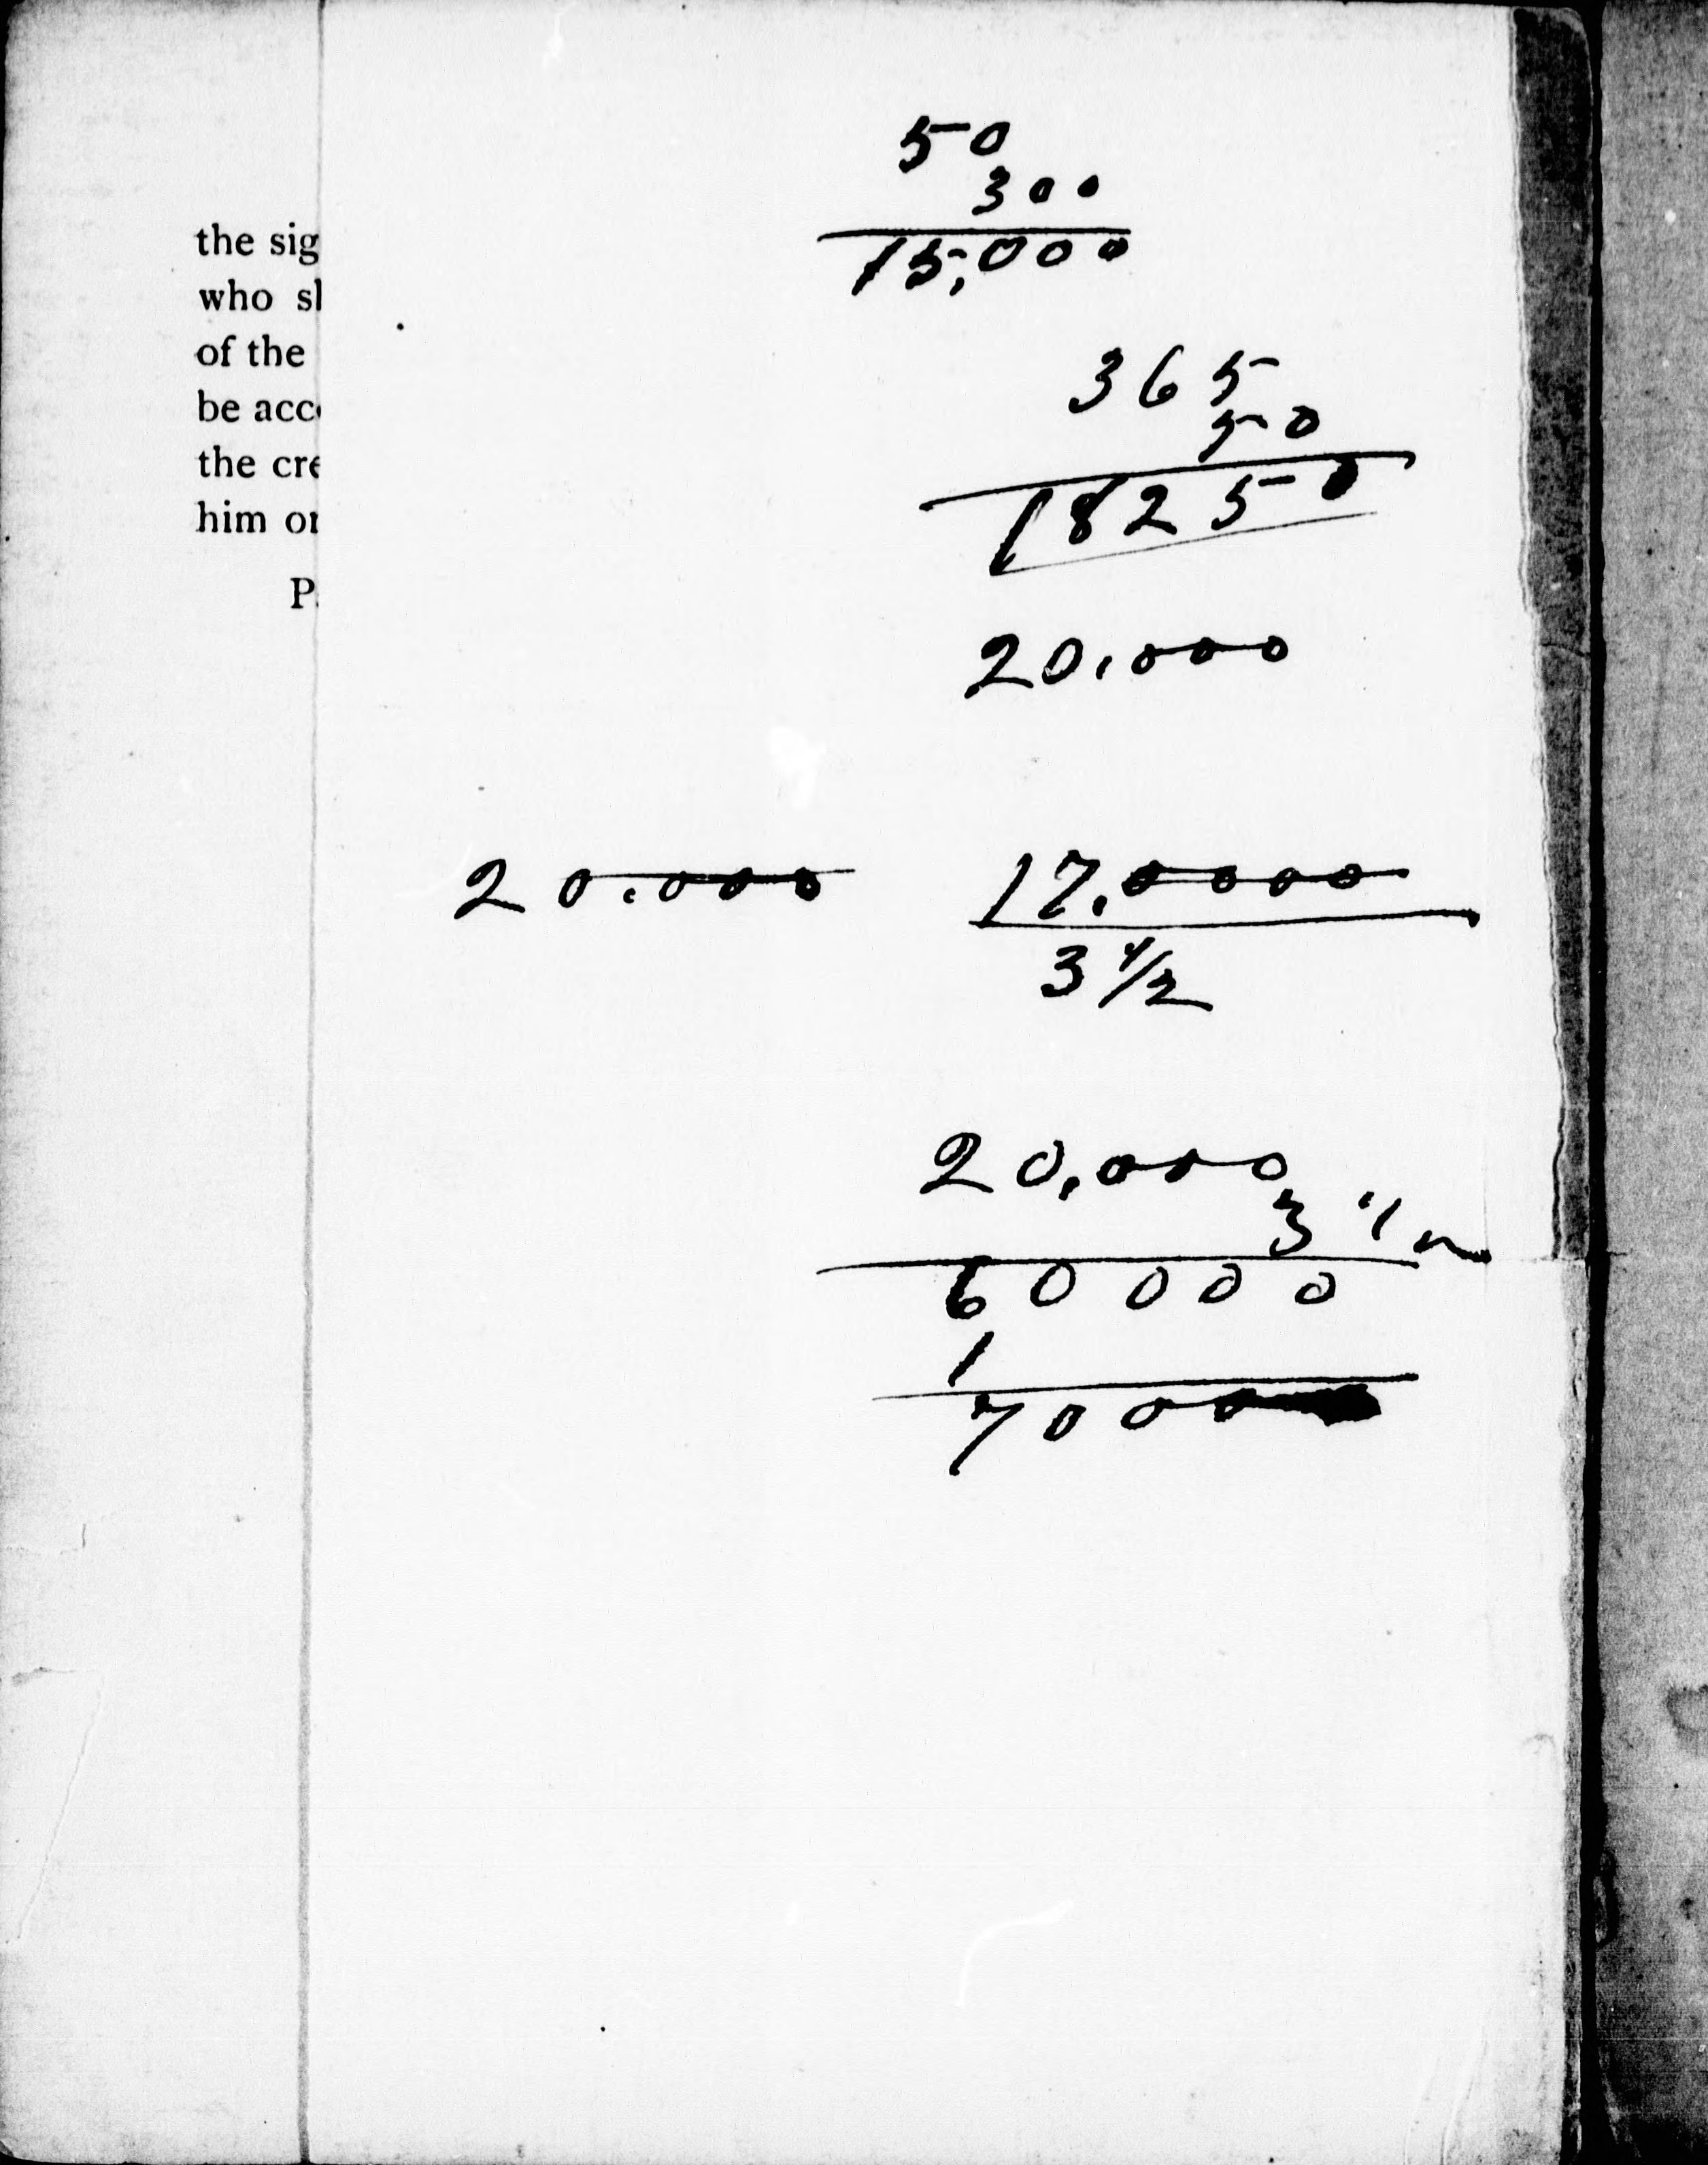 50
300
15,000
the sig
who sl
of the
be acc
the cre
him or
P
365
50
18250
20.000
20.000 17.0000
3 1/2
20,000
3 1/2
60000
1
7000